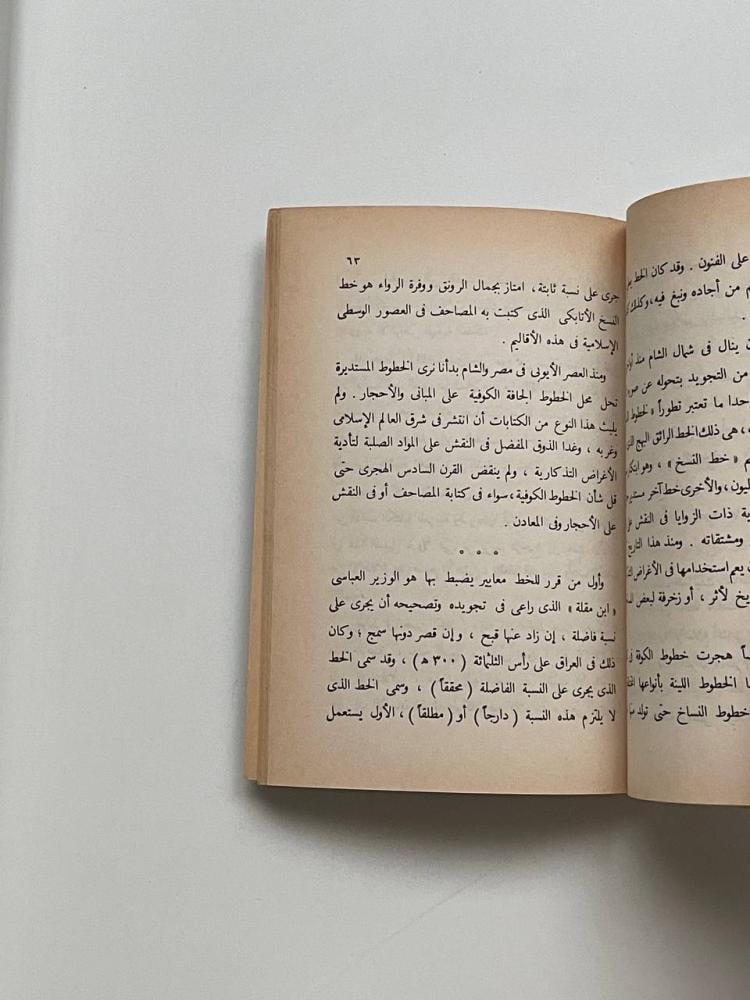 على الفنون . وقد كان الخط
م من أجاده ونبغ فيه، وكذلك
.
ن ينال فى شمال الشام منذ
من التجويد بتحوله عن
حدا ما تعتبر تطوراً
، هى ذلك الخط الرائق البهج
م « خط النسخ » ، وهو
ليون، والأخرى خط آخر
ية ذات الزوايا فى النقش
ومشتقاته . ومنذ هذا التاريخ
يعم استخدامها فى الأغراض
يخ لأثر ، أو زخرفة لبعض
ـاً هجرت خطوط الكوفة
ا الخطوط اللينة بأنواعها
خطوط النساخ حتى تولد
٦٣
جرى على نسبة ثابتة، امتاز بجمال الرونق ووفرة الرواء هو خط
النسخ الأتابكى الذى كتبت به المصاحف فى العصور الوسطى
الإسلامية فى هذه الأقاليم .
ومنذ العصر الأيوبى فى مصر والشام بدأنا نرى الخطوط المستديرة
تحل محل الخطوط الجافة الكوفية على المبانى والأحجار . ولم
يلبث هذا النوع من الكتابات أن انتشر فى شرق العالم الإسلامى
وغربه ، وغدا الذوق المفضل فى النقش على المواد الصلبة لتأدية
الأغراض التذكارية ، ولم ينقض القرن السادس الهجرى حتى
قل شأن الخطوط الكوفية، سواء فى كتابة المصاحف أو فى النقش
على الأحجار وفى المعادن .
* * *
وأول من قرر للخط معايير يضبط بها هو الوزير العباسى
« ابن مقلة » الذى راعى فى تجويده وتصحيحه أن يجرى على
نسبة فاضلة ، إن زاد عنها قبح ، وإن قصر دونها سمج ؛ وكان
ذلك فى العراق على رأس الثلثمائة ( ٣٠٠ هـ ) ، وقد سمى الخط
الذى يجرى على النسبة الفاضلة ( محققاً ) ، وسمى الخط الذى
لا يلتزم هذه النسبة ( دارجاً ) أو ( مطلقاً ) ، الأول يستعمل